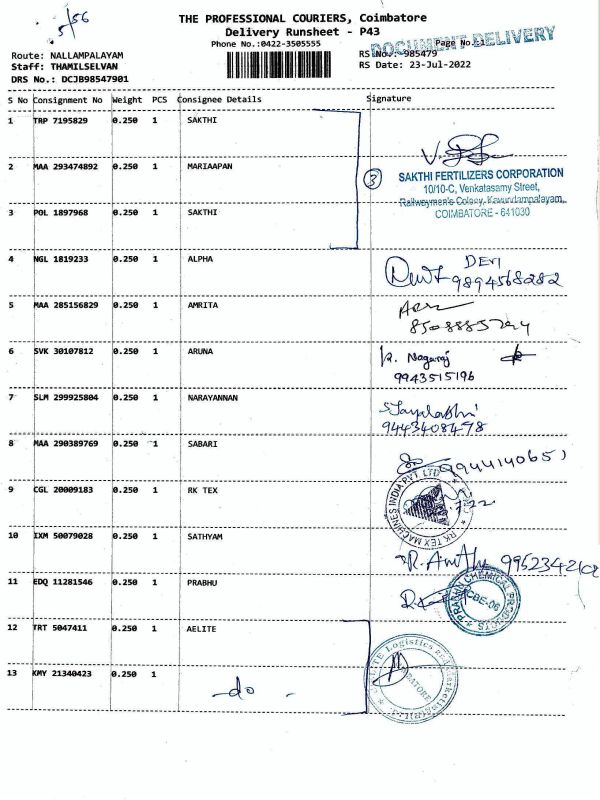 5/56
THE PROFESSIONAL COURIERS, Coimbatore
Delivery Runsheet - P43
Phone No.:0422-3505555
Page No.:1
DOCUMENT DELIVERY
Route: NALLAMPALAYAM
RS No.: 985479
Staff: THAMILSELVAN
RS Date: 23-Jul-2022
DRS No.: DCJB98547901
S No Consignment No Weight PCS Consignee Details Signature
1 TRP 7195829 0.250 1 SAKTHI
2 MAA 293474892 0.250 1 MARIAAPAN
3
SAKTHI FERTILIZERS CORPORATION
10/10-C, Venkatasamy Street,
Railwaymen's Colony, Kavundampalayam,
COIMBATORE - 641030
3 POL 1897968 0.250 1 SAKTHI
4 NGL 1819233 0.250 1 ALPHA
DEVI
9894568282
5 MAA 285156829 0.250 1 AMRITA
6 SVK 30107812 0.250 1 ARUNA
K. Nagaraj
9943515196
7 SLM 299925804 0.250 1 NARAYANNAN
S Jayalakshi
9443408478
8 MAA 290389769 0.250 1 SABARI
9944140651
9 CGL 20009183 0.250 1 RK TEX
RK TEX MACHINES INDIA PVT LTD
10 IXM 50079028 0.250 1 SATHYAM
11 EDQ 11281546 0.250 1 PRABHU
PRABHU CHEMICAL PRODUCTS
CBE-06
12 TRT 5047411 0.250 1 AELITE
13 KMY 21340423 0.250 1
-do-